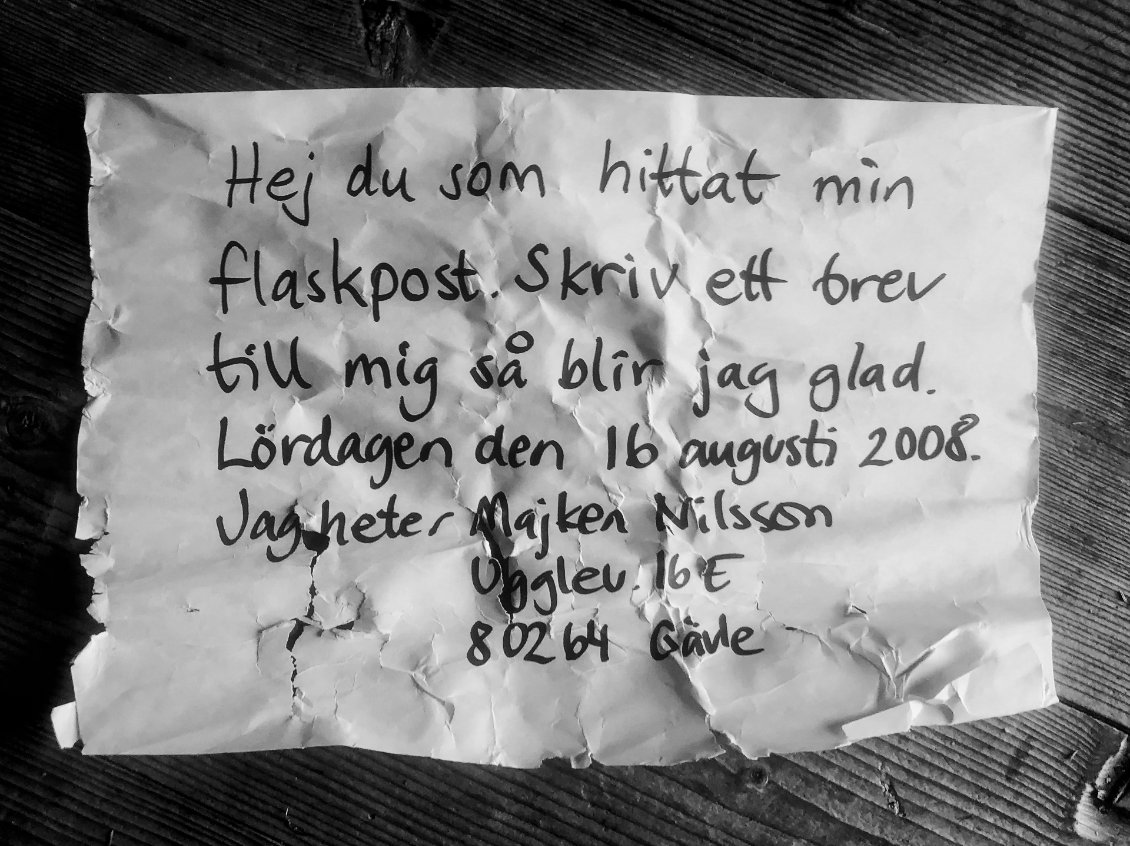 Hej du som hittat min
flaskpost. Skriv ett brev
till mig så blir jag glad.
Lördagen den 16 augusti 2008.
Jag heter Majken Nilsson
Ugglev. 16 E
80264 Gävle